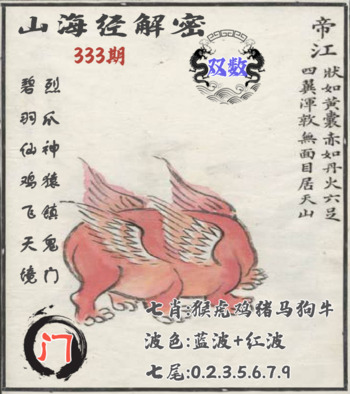 山海经解密
333期
双数
帝江
狀如黄囊赤如丹火六足
四翼渾敦無面目居天山
烈爪神猿镇鬼门
碧羽仙鸡飞天境
门
七肖:猴虎鸡猪马狗牛
波色:蓝波+红波
七尾:0.2.3.5.6.7.9